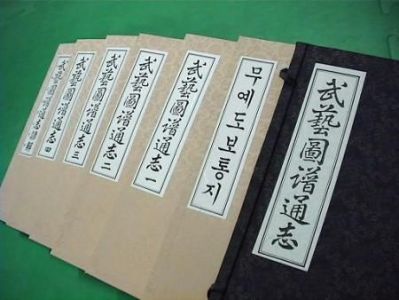 武藝圖谱通志
무예도보통지
武藝圖谱通志一
武藝圖谱通志二
武藝圖谱通志三
武藝圖谱通志四
武藝圖谱通志